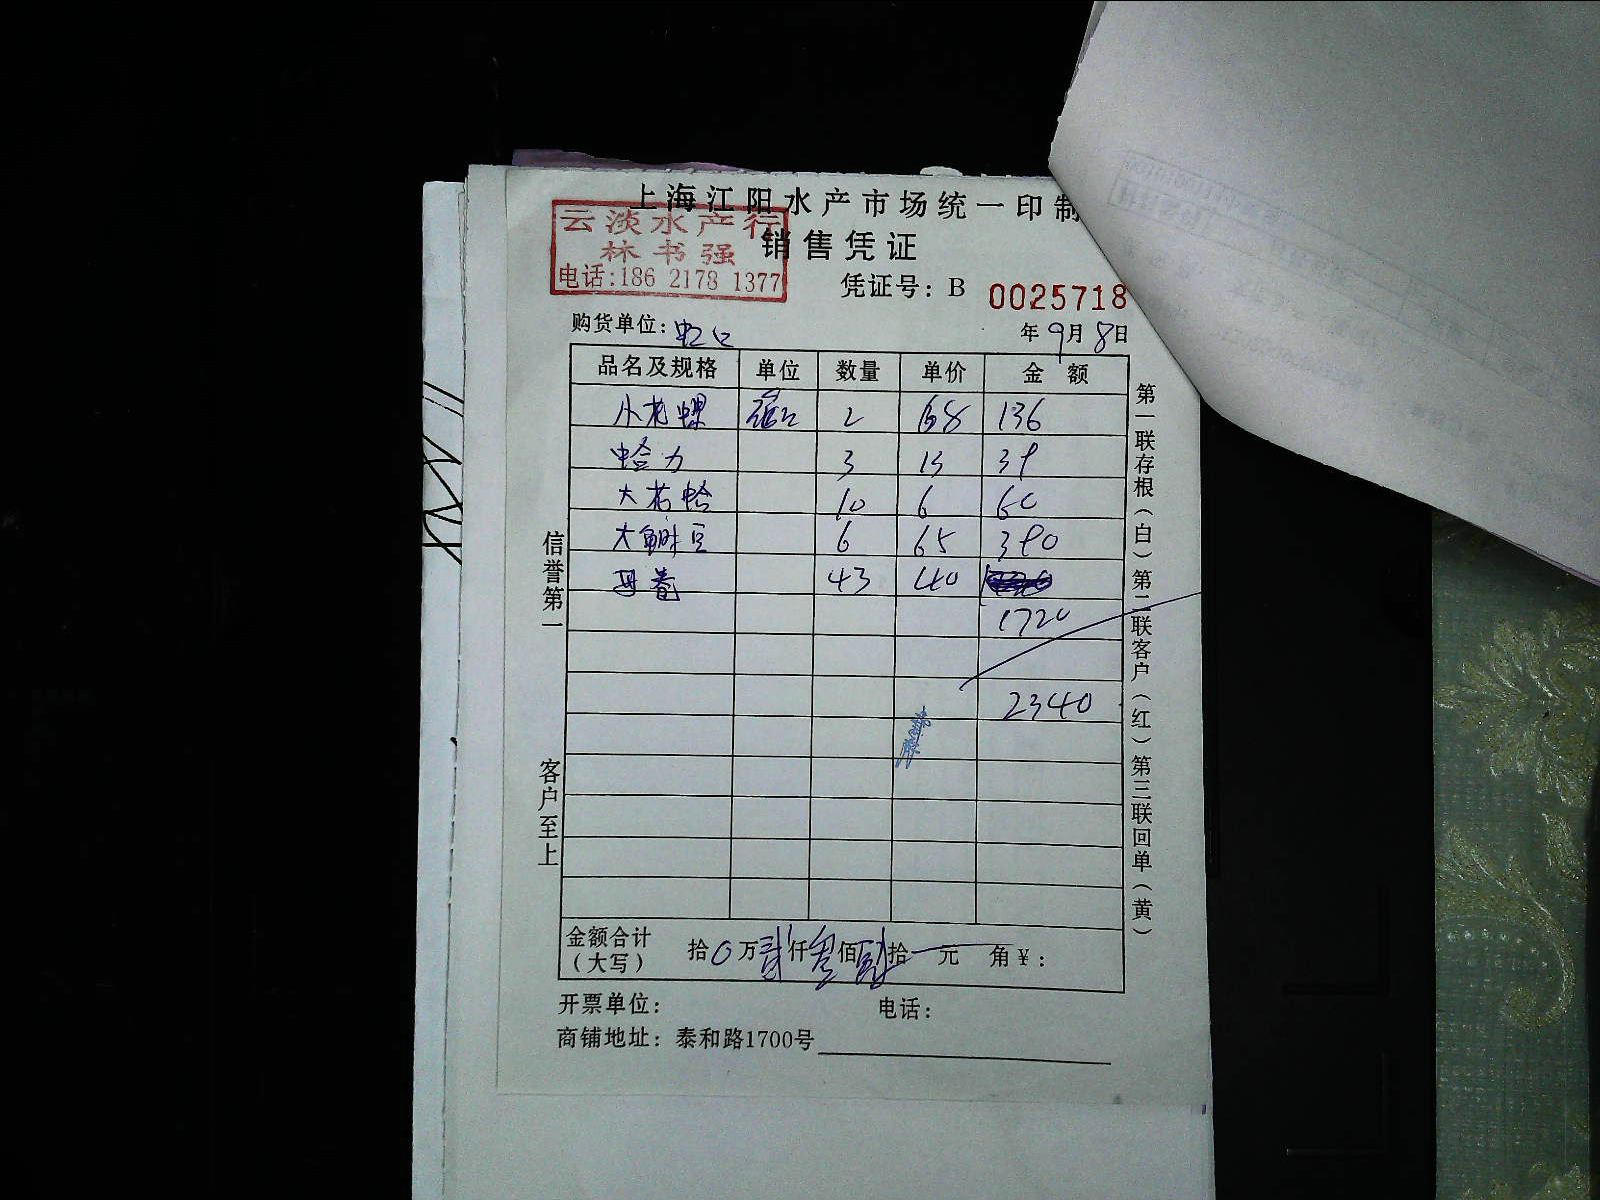 上海江阳水产市场统一印制
云淡水产行
林书强
电话:186 2178 1377
销售凭证
凭证号: B 0025718
购货单位: 虹口
年9月8日
品名及规格 单位 数量 单价 金额
小花螺 2 68 136
蛤力 3 13 39
大花蛤 10 6 60
大鲜豆 6 65 390
43 40
1720
2340
金额合计（大写） 拾0万贰仟叁佰肆拾一元 角￥:
开票单位: 电话:
商铺地址: 泰和路1700号
信誉第一
客户至上
第一联存根（白）第二联客户（红）第三联回单（黄）